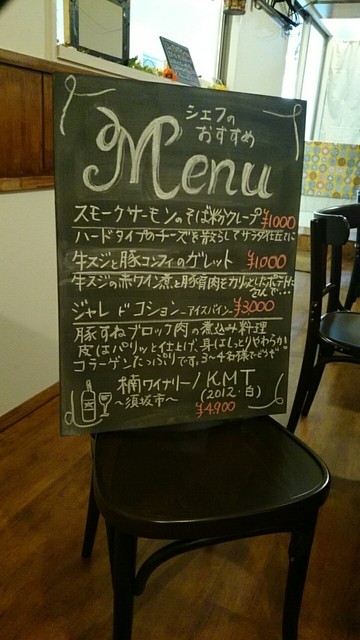 シェフの
おすすめ
Menu
スモークサーモンのそば粉クレープ ¥1000
ハードタイプのチーズを散らしてサラダ仕立に
牛スジと豚コンフィのガレット ¥1,000
牛スジの赤ワイン煮と豚肩肉とカリッとしたポテトに
ジャレ ド コション -アイスバイン- ¥3,000
豚すねブロック肉の煮込み料理
皮はパリッと仕上げ、身はしっとりやわらか!
コラーゲンたっぷりです。3~4名様でどうぞ
楠ワイナリー / KMT
~須坂市~ (2012・白)
¥4,900